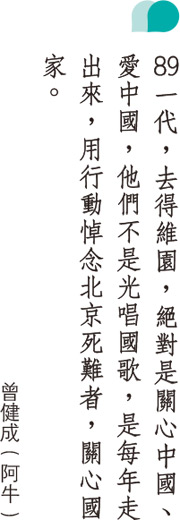 89一代，去得維園，絕對是關心中國、
愛中國，他們不是光唱國歌，是每年走
出來，用行動悼念北京死難者，關心國
家。
曾健成（阿牛）